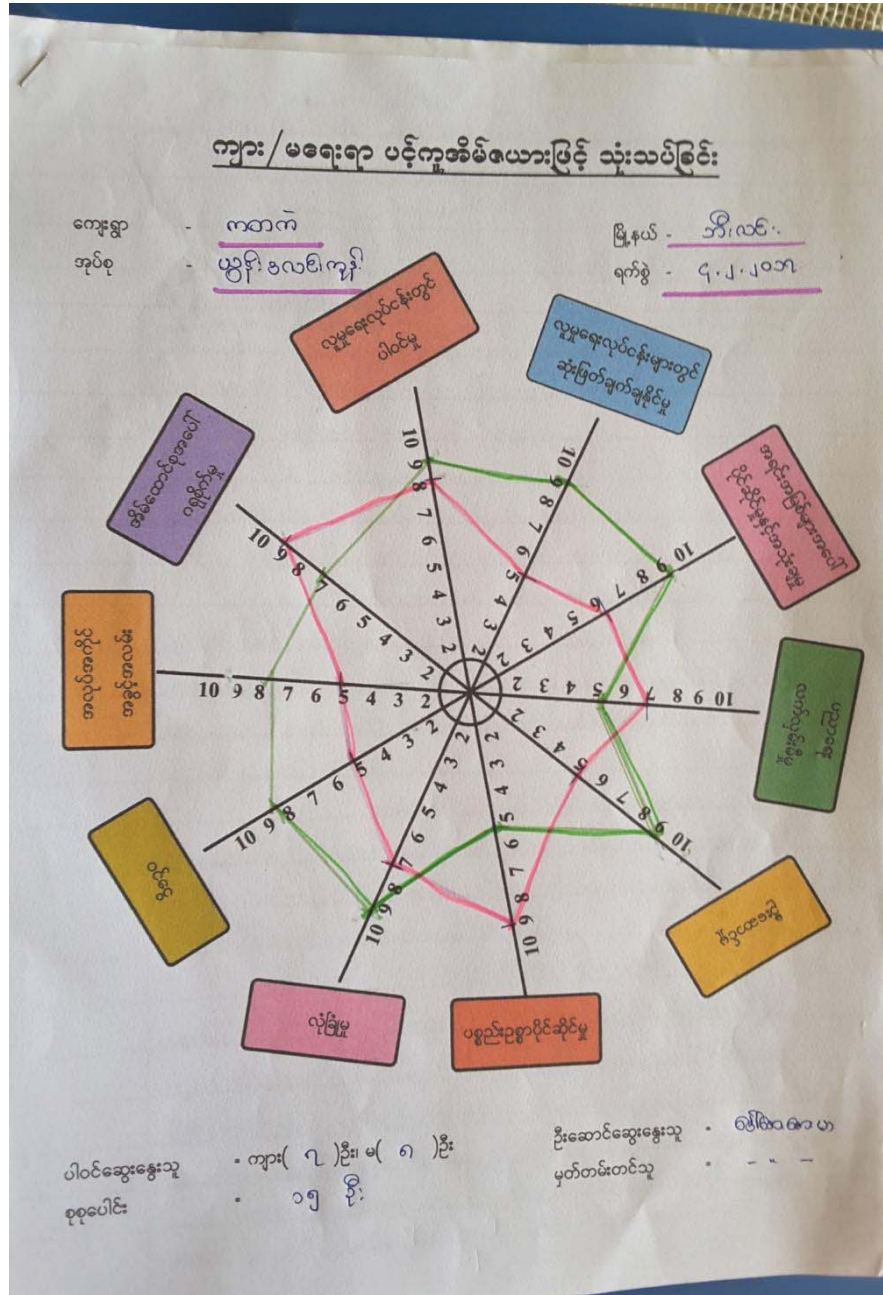 ကျား/မရေးရာ ပင့်ကူအိမ်ဇယားဖြင့် သုံးသပ်ခြင်း
ကျေးရွာ - ကတကဲ
မြို့နယ် - ဘီးလင်း
အုပ်စု -
ရက်စွဲ - ၄.၂.၂၀၁၇
လူမှုရေးလုပ်ငန်းတွင်
ပါဝင်မှု
လူမှုရေးလုပ်ငန်းများတွင်
ဆုံးဖြတ်ချက်ချနိုင်မှု
အရင်းအမြစ်များအပေါ်
ပိုင်ဆိုင်မှုနှင့်အသုံးချမှု
ပညာရေး
ပစ္စည်းဥစ္စာပိုင်ဆိုင်မှု
လုံခြုံမှု
ဝင်ငွေ
အလုပ်အကိုင်
အခွင့်အလမ်း
အိမ်ထောင်စုအပေါ်
ဂရုစိုက်မှု
10 9 8 7 6 5 4 3 2
10 9 8 7 6 5 4 3 2
10 9 8 7 6 5 4 3 2
10 9 8 7 6 5 4 3 2
10 9 8 7 6 5 4 3 2
10 9 8 7 6 5 4 3 2
10 9 8 7 6 5 4 3 2
10 9 8 7 6 5 4 3 2
10 9 8 7 6 5 4 3 2
10 9 8 7 6 5 4 3 2
ပါဝင်ဆွေးနွေးသူ - ကျား( ၇ )ဦး၊ မ( ၈ )ဦး
ဦးဆောင်ဆွေးနွေးသူ -
စုစုပေါင်း - ၁၅ ဦး
မှတ်တမ်းတင်သူ - - " -